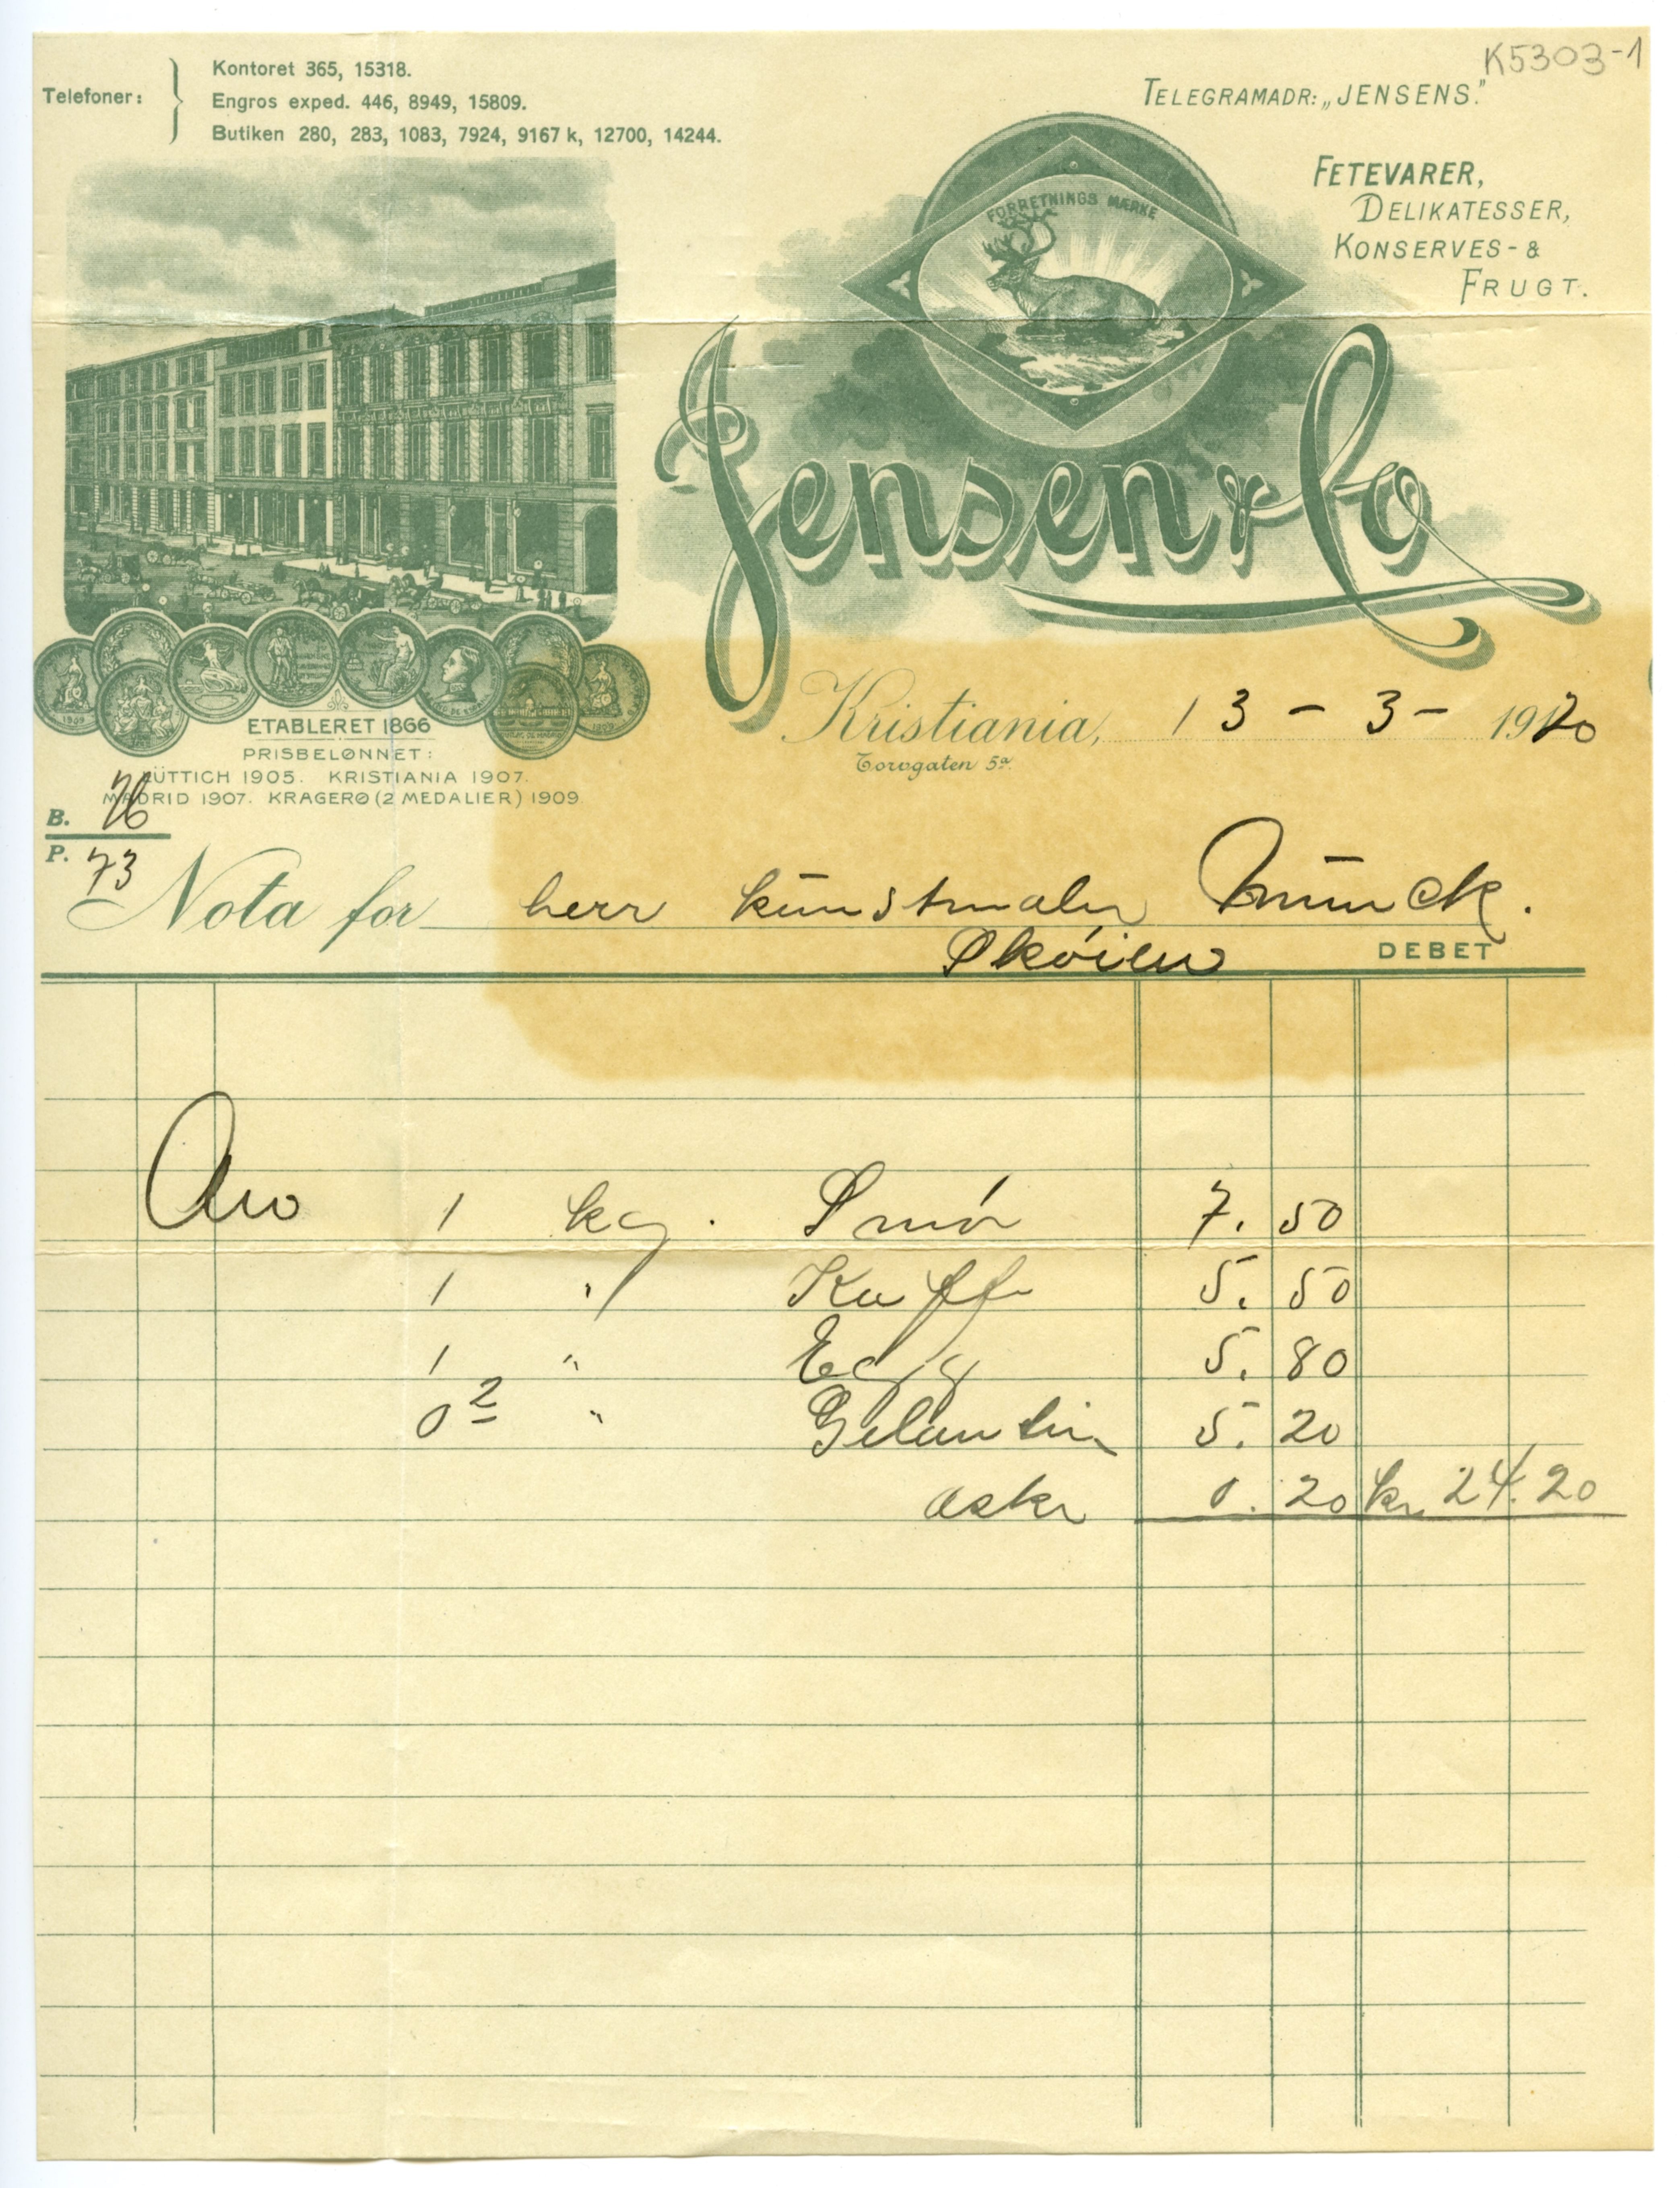 K5303-1
Telefoner:
Kontoret 365, 15318.
Engros exped. 446, 8949, 15809.
Butiken 280, 283, 1083, 7924, 9167 k, 12700, 14244.
TELEGRAMADR: „JENSENS."
FETEVARER,
DELIKATESSER,
KONSERVES- &
FRUGT.
FORRETNINGS MÆRKE
Jensen & Co
ETABLERET 1866
PRISBELØNNET:
LÜTTICH 1905. KRISTIANIA 1907.
MADRID 1907. KRAGERØ (2 MEDALIER) 1909
Kristiania, 13 - 3 - 1920
Torvgaten 5a.
B. 76
P. 73
Nota for herr kunstmaler Munck.
Skøien
DEBET
1 kg. Smør 7. 50
1 " Kaffe 5. 50
1 " Egg 5. 80
0 2 " Gelantin 5. 20
aske 0. 20 kr. 24.20